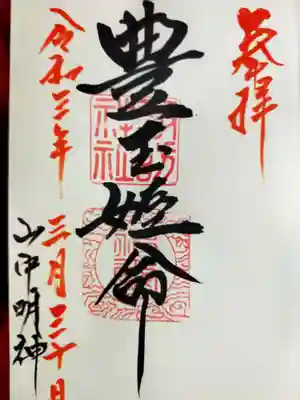 奉拝
豊玉姫命
令和三年
三月三十日
山中明神